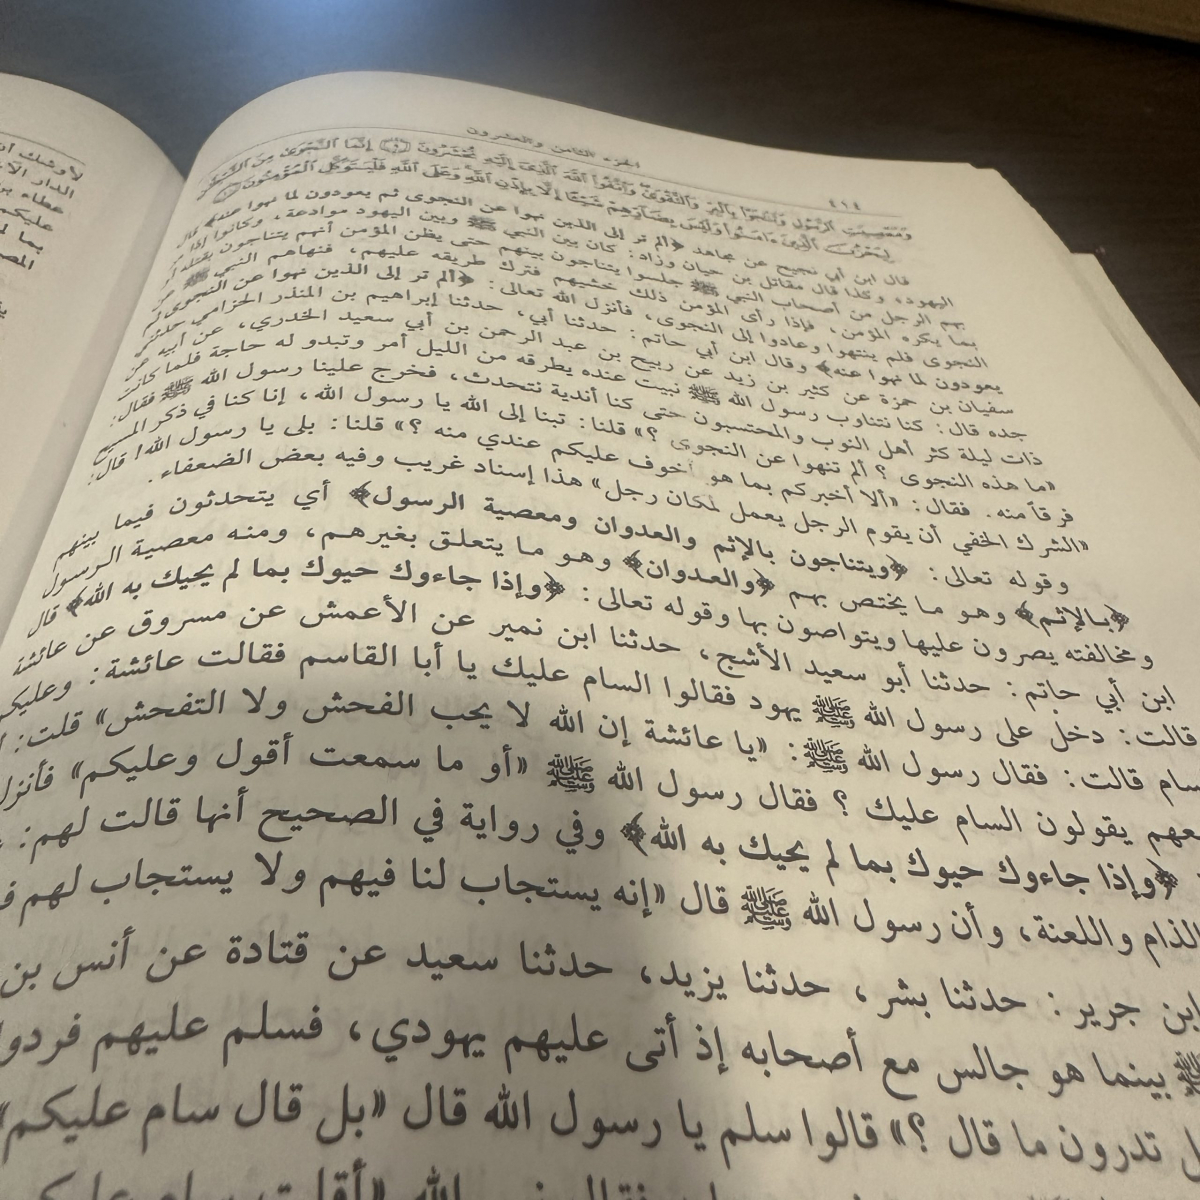 الجزء الثامن والعشرون
٤١٤
وَمَعْصِيَتِ ٱلرَّسُولِ وَتَنَٰجَوْا۟ بِٱلْبِرِّ وَٱلتَّقْوَىٰ وَٱتَّقُوا۟ ٱللَّهَ ٱلَّذِىٓ إِلَيْهِ تُحْشَرُونَ ۝ إِنَّمَا ٱلنَّجْوَىٰ مِنَ ٱلشَّيْطَٰنِ
لِيَحْزُنَ ٱلَّذِينَ ءَامَنُوا۟ وَلَيْسَ بِضَآرِّهِمْ شَيْـًٔا إِلَّا بِإِذْنِ ٱللَّهِ وَعَلَى ٱللَّهِ فَلْيَتَوَكَّلِ ٱلْمُؤْمِنُونَ ۝
قال ابن أبي نجيح عن مجاهد ﴿ألم تر إلى الذين نهوا عن النجوى ثم يعودون لما نهوا عنه﴾ قال
اليهود، وكذا قال مقاتل بن حيان وزاد: كان بين النبي ﷺ وبين اليهود موادعة، وكانوا إذا
بهم الرجل من أصحاب النبي ﷺ جلسوا يتناجون بينهم حتى يظن المؤمن أنهم يتناجون بقتله
بما يكره المؤمن، فإذا رأى المؤمن ذلك خشيهم فترك طريقه عليهم، فنهاهم النبي ﷺ عن
النجوى فلم ينتهوا وعادوا إلى النجوى، فأنزل الله تعالى: ﴿ألم تر إلى الذين نهوا عن النجوى ثم
يعودون لما نهوا عنه﴾ وقال ابن أبي حاتم: حدثنا أبي، حدثنا إبراهيم بن المنذر الحزامي حدثني
سفيان بن حمزة عن كثير بن زيد عن ربيح بن عبد الرحمن بن أبي سعيد الخدري، عن أبيه عن
جده قال: كنا نتناوب رسول الله ﷺ نبيت عنده يطرقه من الليل أمر وتبدو له حاجة فلما كانت
ذات ليلة كثر أهل النوب والمحتسبون حتى كنا أندية نتحدث، فخرج علينا رسول الله ﷺ فقال:
«ما هذه النجوى ؟ ألم تنهوا عن النجوى ؟» قلنا: تبنا إلى الله يا رسول الله، إنا كنا في ذكر المسيح
فرقاً منه. فقال: «ألا أخبركم بما هو أخوف عليكم عندي منه ؟» قلنا: بلى يا رسول الله! قال:
«الشرك الخفي أن يقوم الرجل يعمل لمكان رجل» هذا إسناد غريب وفيه بعض الضعفاء.
وقوله تعالى: ﴿ويتناجون بالإثم والعدوان ومعصية الرسول﴾ أي يتحدثون فيما بينهم
﴿بالإثم﴾ وهو ما يختص بهم ﴿والعدوان﴾ وهو ما يتعلق بغيرهم، ومنه معصية الرسول
ومخالفته يصرون عليها ويتواصون بها وقوله تعالى: ﴿وإذا جاءوك حيوك بما لم يحيك به الله﴾ قال
ابن أبي حاتم: حدثنا أبو سعيد الأشج، حدثنا ابن نمير عن الأعمش عن مسروق عن عائشة
قالت: دخل على رسول الله ﷺ يهود فقالوا السام عليك يا أبا القاسم فقالت عائشة: وعليكم
سام قالت: فقال رسول الله ﷺ: «يا عائشة إن الله لا يحب الفحش ولا التفحش» قلت:
يقولون السام عليك ؟ فقال رسول الله ﷺ «أو ما سمعت أقول وعليكم» فأنزل
﴿وإذا جاءوك حيوك بما لم يحيك به الله﴾ وفي رواية في الصحيح أنها قالت لهم:
الذام واللعنة، وأن رسول الله ﷺ قال «إنه يستجاب لنا فيهم ولا يستجاب لهم
ابن جرير: حدثنا بشر، حدثنا يزيد، حدثنا سعيد عن قتادة عن أنس بن
ﷺ بينما هو جالس مع أصحابه إذ أتى عليهم يهودي، فسلم عليهم فردوا
تدرون ما قال ؟» قالوا سلم يا رسول الله قال «بل قال سام عليكم»